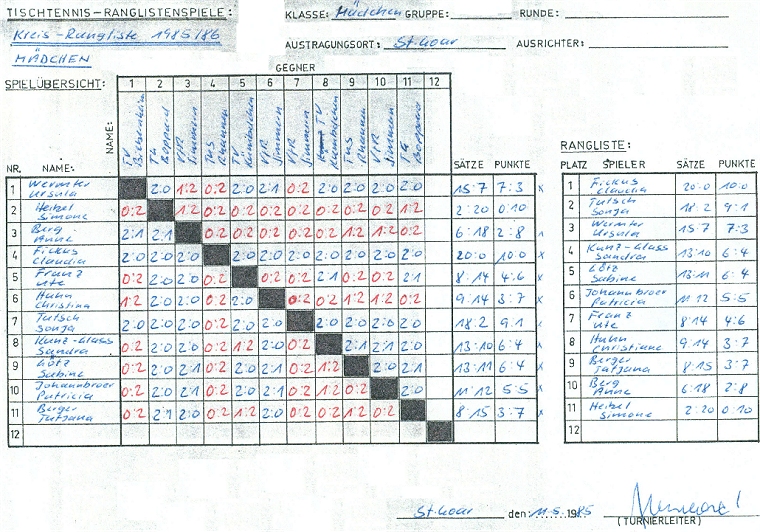 TISCHTENNIS-RANGLISTENSPIELE: KLASSE: Mädchen GRUPPE: RUNDE:
Kreis-Rangliste 1985/86
MÄDCHEN AUSTRAGUNGSORT: St. Goar AUSRICHTER:
GEGNER
SPIELÜBERSICHT: 1 2 3 4 5 6 7 8 9 10 11 12
NAME: TV TV Boppard VfR Simmern TuS Rheinböllen TV VfR Simmern VfR Simmern TV TuS VfR Simmern Boppard
NR. NAME: SÄTZE PUNKTE
1 Wermter Ursula 2:0 1:2 0:2 2:0 2:1 0:2 2:0 2:0 2:0 2:0 15:7 7:3 x
2 Heibel Simone 0:2 1:2 0:2 0:2 0:2 0:2 0:2 0:2 0:2 1:2 2:20 0:10
3 Berg Anne 2:1 2:1 0:2 0:2 0:2 0:2 0:2 1:2 1:2 0:2 6:18 2:8
4 Fickus Claudia 2:0 2:0 2:0 2:0 2:0 2:0 2:0 2:0 2:0 2:0 20:0 10:0 x
5 Franz Ute 0:2 2:0 2:0 0:2 0:2 0:2 2:1 0:2 0:2 2:1 8:14 4:6 x
6 Huhn Christina 1:2 2:0 2:0 0:2 2:0 0:2 0:2 1:2 1:2 0:2 9:14 3:7 x
7 Tutsch Sonja 2:0 2:0 2:0 0:2 2:0 2:0 2:0 2:0 2:0 2:0 18:2 9:1
8 Kunz-Glass Sandra 0:2 2:0 2:0 0:2 1:2 2:0 0:2 2:1 2:1 2:0 13:10 6:4 x
9 Götz Sabine 0:2 2:0 2:1 0:2 2:0 2:1 0:2 1:2 2:0 2:1 13:11 6:4 x
10 Johannbroer Patricia 0:2 2:0 2:1 0:2 2:0 2:1 0:2 1:2 0:2 2:0 11:12 5:5 x
11 Berger Tatjana 0:2 2:1 2:0 0:2 1:2 2:0 0:2 0:2 1:2 0:2 8:15 3:7 x
12
RANGLISTE:
PLATZ SPIELER SÄTZE PUNKTE
1 Fickus Claudia 20:0 10:0
2 Tutsch Sonja 18:2 9:1
3 Wermter Ursula 15:7 7:3
4 Kunz-Glass Sandra 13:10 6:4
5 Götz Sabine 13:11 6:4
6 Johannbroer Patricia 11:12 5:5
7 Franz Ute 8:14 4:6
8 Huhn Christiane 9:14 3:7
9 Berger Tatjana 8:15 3:7
10 Berg Anne 6:18 2:8
11 Heibel Simone 2:20 0:10
12
St. Goar den: 11.5. 1985
(TURNIERLEITER)